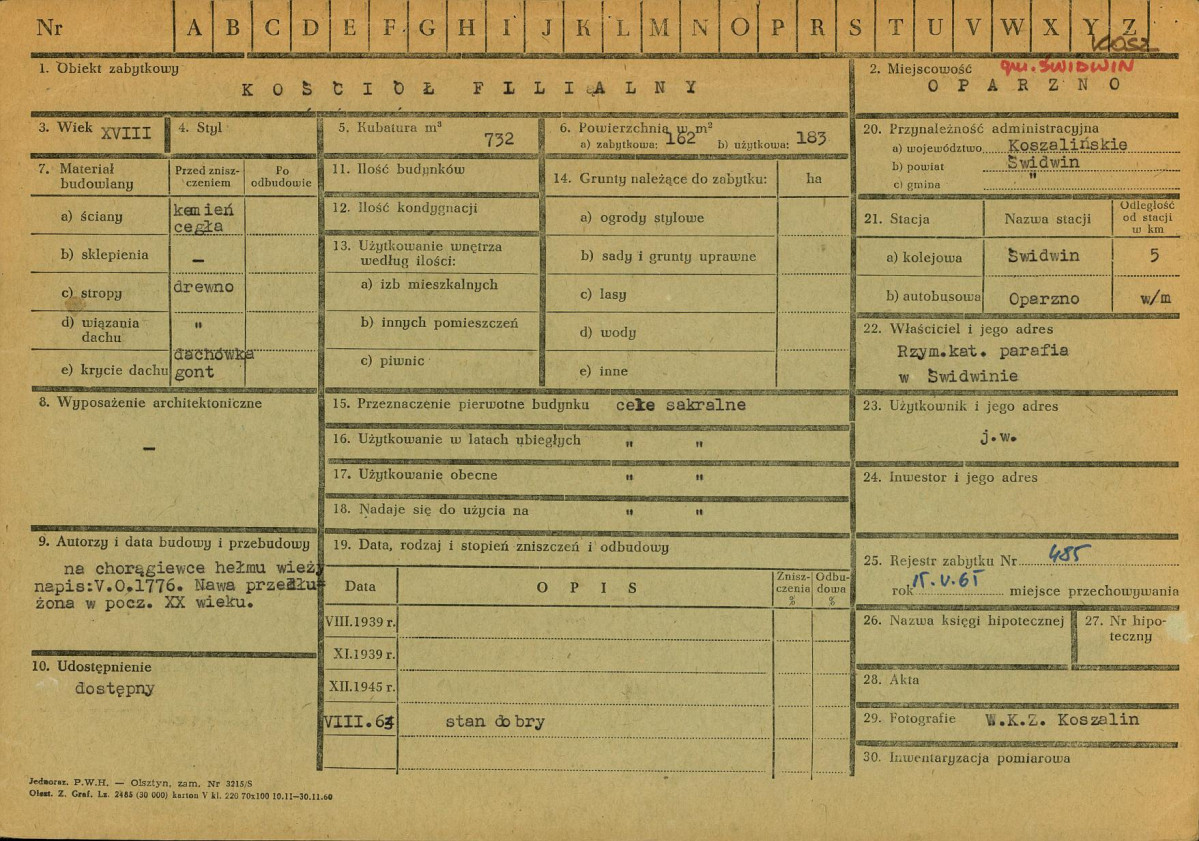 Nr A B C D E F G H I J K L M N O P R S T U V W X Y Z
KOSZ
1. Obiekt zabytkowy
KOŚCIÓŁ FILIALNY
2. Miejscowość gm. ŚWIDWIN
OPARZNO
3. Wiek XVIII
4. Styl
5. Kubatura m³
732
6. Powierzchnia w m²
a) zabytkowa: 162 b) użytkowa: 183
20. Przynależność administracyjna
a) województwo Koszalińskie
b) powiat Świdwin
c) gmina "
7. Materiał budowlany
Przed znisz-
czeniem
Po
odbudowie
a) ściany kamień
cegła
b) sklepienia –
c) stropy drewno
d) wiązania
dachu "
e) krycie dachu dachówka
gont
11. Ilość budynków
12. Ilość kondygnacji
13. Użytkowanie wnętrza
według ilości:
a) izb mieszkalnych
b) innych pomieszczeń
c) piwnic
14. Grunty należące do zabytku: ha
a) ogrody stylowe
b) sady i grunty uprawne
c) lasy
d) wody
e) inne
21. Stacja Nazwa stacji Odległość
od stacji
w km
a) kolejowa Świdwin 5
b) autobusowa Oparzno w/m
22. Właściciel i jego adres
Rzym.kat. parafia
w Świdwinie
8. Wyposażenie architektoniczne
–
15. Przeznaczenie pierwotne budynku cele sakralne
16. Użytkowanie w latach ubiegłych " "
17. Użytkowanie obecne " "
18. Nadaje się do użycia na " "
23. Użytkownik i jego adres
j.w.
24. Inwestor i jego adres
9. Autorzy i data budowy i przebudowy
na chorągiewce hełmu wieży
napis:V.O.1776. Nawa przedłu-
żona w pocz. XX wieku.
10. Udostępnienie
dostępny
19. Data, rodzaj i stopień zniszczeń i odbudowy
Data OPIS Znisz-
czenia
% Odbu-
dowa
%
VIII.1939 r.
XI.1939 r.
XII.1945 r.
VIII.63 stan dobry
25. Rejestr zabytku Nr 485
rok 15.V.65 miejsce przechowywania
26. Nazwa księgi hipotecznej
27. Nr hipo-
teczny
28. Akta
29. Fotografie W.K.Z. Koszalin
30. Inwentaryzacja pomiarowa
Jednoraz. P.W.H. — Olsztyn, zam. Nr 3215/S
Olszt. Z. Graf. Lz. 2485 (30 000) karton V kl. 220 70x100 10.11—30.11.60